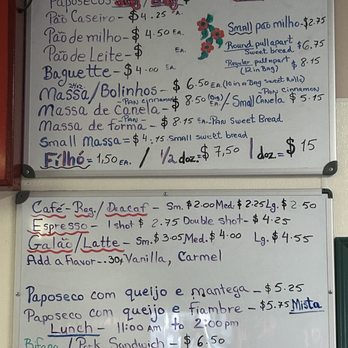 Paposecos
Pão Caseiro - $4.25 EA.
Pão de milho - $4.50 EA.
Small pão milho - $2.75
Pão de Leite - $ EA.
Round pull apart sweet bread - $6.75
Baguette - $4.00 EA.
Regular pull apart (12 in Bag) - $8.15
Massa/Bolinhos - $6.50 EA (10 in a Bag sweet Rolls)
Massa de Canela - PAN cinnamon $8.50 / Small Canela - PAN cinnamon $5.15
Massa de forma - PAN - $8.15 EA - PAN Sweet Bread
Small Massa = $4.75 Small sweet bread
Filhó = 1,50 EA. / 1/2 doz = $7,50 / 1 doz = $15
Café - Reg./Deacaf - Sm. $2.00 Med $2.25 Lg. $2.50
Espresso - 1 shot $2.75 Double shot - $4.25
Galão/Latte - Sm. $3.05 Med. $4.00 Lg. $4.55
Add a flavor - .30¢ Vanilla, Carmel
Paposeco com queijo e mantega - $5.25
Paposeco com queijo e Fiambre - $5.75 Mista
Lunch - 11:00 AM to 2:00 pm
Bifana / Pork Sandwich - $6.50